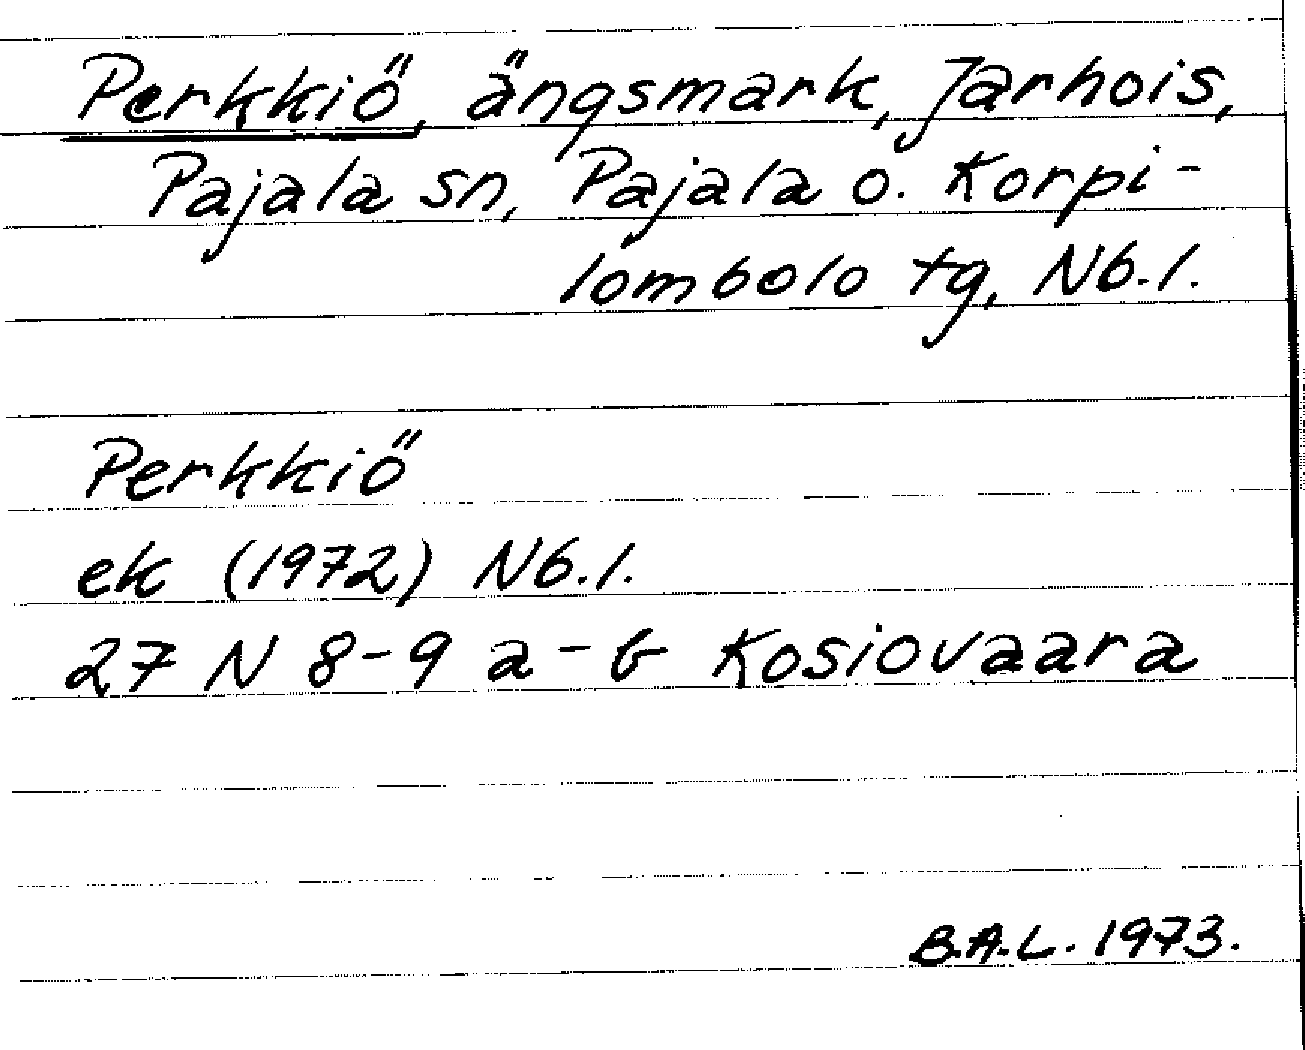 Perkkiö, ängsmark, Jarhois,
Pajala sn, Pajala o. Korpi-
lombolo tg, Nb.l.
Perkkiö
ek (1972) Nb.l.
27 N 8-9 a-b Kosiovaara
B.A.L. 1973.